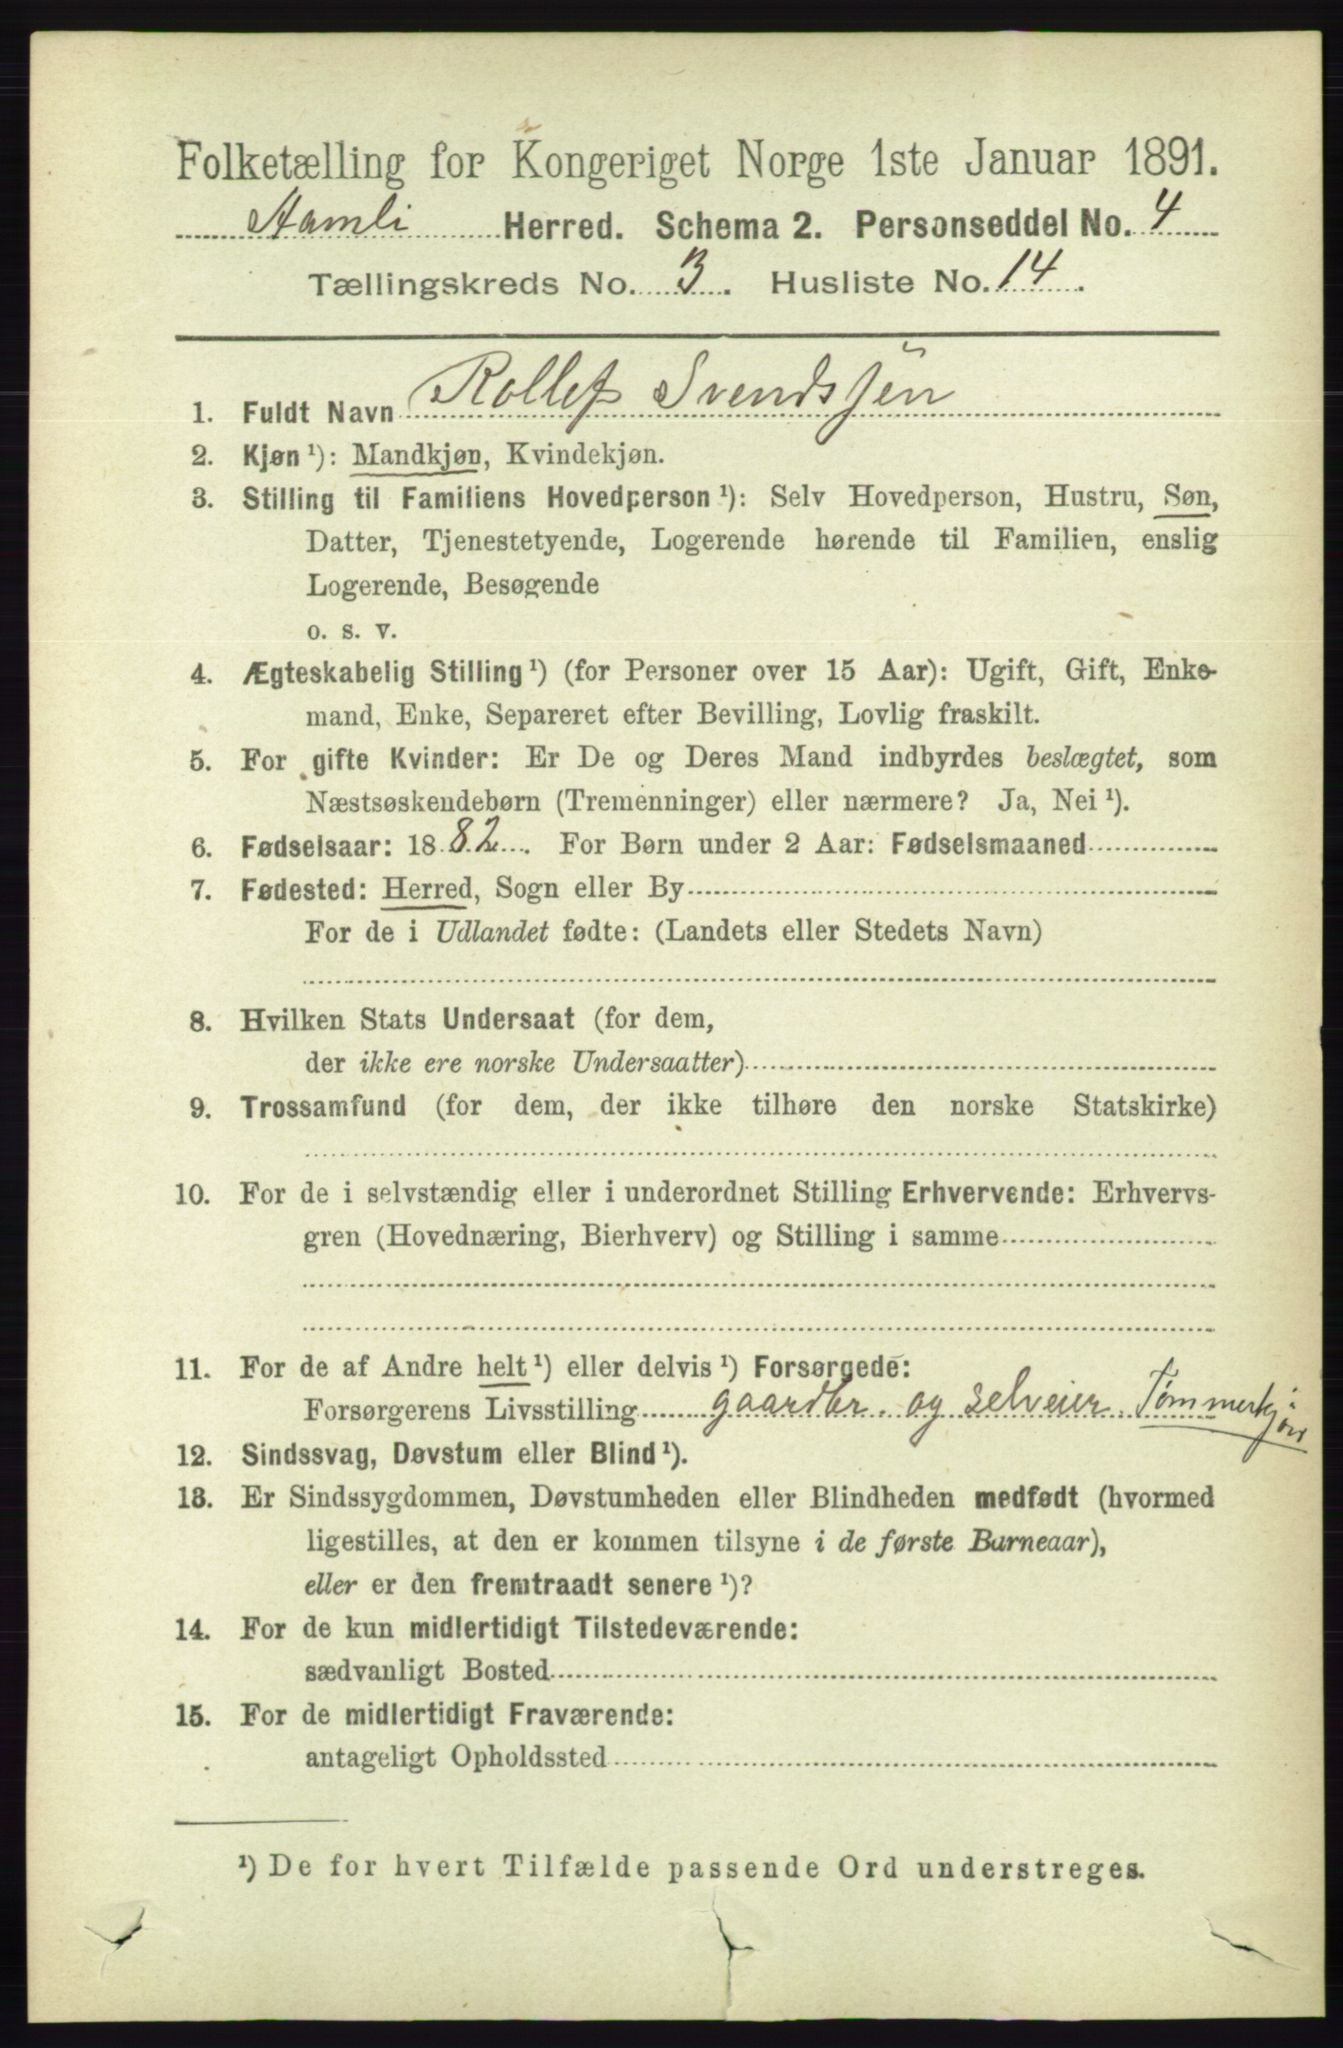 Folketælling for Kongeriget Norge 1ste Januar 1891.
Aamli Herred. Schema 2. Personseddel No. 4
Tællingskreds No. 3. Husliste No. 14.
1. Fuldt Navn Rollef Svendssen
2. Kjøn ¹): Mandkjøn, Kvindekjøn.
3. Stilling til Familiens Hovedperson ¹): Selv Hovedperson, Hustru, Søn,
Datter, Tjenestetyende, Logerende hørende til Familien, enslig
Logerende, Besøgende
o. s. v.
4. Ægteskabelig Stilling ¹) (for Personer over 15 Aar): Ugift, Gift, Enke-
mand, Enke, Separeret efter Bevilling, Lovlig fraskilt.
5. For gifte Kvinder: Er De og Deres Mand indbyrdes beslægtet, som
Næstsøskendebørn (Tremenninger) eller nærmere? Ja, Nei ¹).
6. Fødselsaar: 1882. For Børn under 2 Aar: Fødselsmaaned
7. Fødested: Herred, Sogn eller By
For de i Udlandet fødte: (Landets eller Stedets Navn)
8. Hvilken Stats Undersaat (for dem,
der ikke ere norske Undersaatter)
9. Trossamfund (for dem, der ikke tilhøre den norske Statskirke)
10. For de i selvstændig eller i underordnet Stilling Erhvervende: Erhvervs-
gren (Hovednæring, Bierhverv) og Stilling i samme
11. For de af Andre helt ¹) eller delvis ¹) Forsørgede:
Forsørgerens Livsstilling gaardbr. og selveier. Tømmerkjør
12. Sindssvag, Døvstum eller Blind ¹).
13. Er Sindssygdommen, Døvstumheden eller Blindheden medfødt (hvormed
ligestilles, at den er kommen tilsyne i de første Barneaar),
eller er den fremtraadt senere ¹)?
14. For de kun midlertidigt Tilstedeværende:
sædvanligt Bosted
15. For de midlertidigt Fraværende:
antageligt Opholdssted
¹) De for hvert Tilfælde passende Ord understreges.